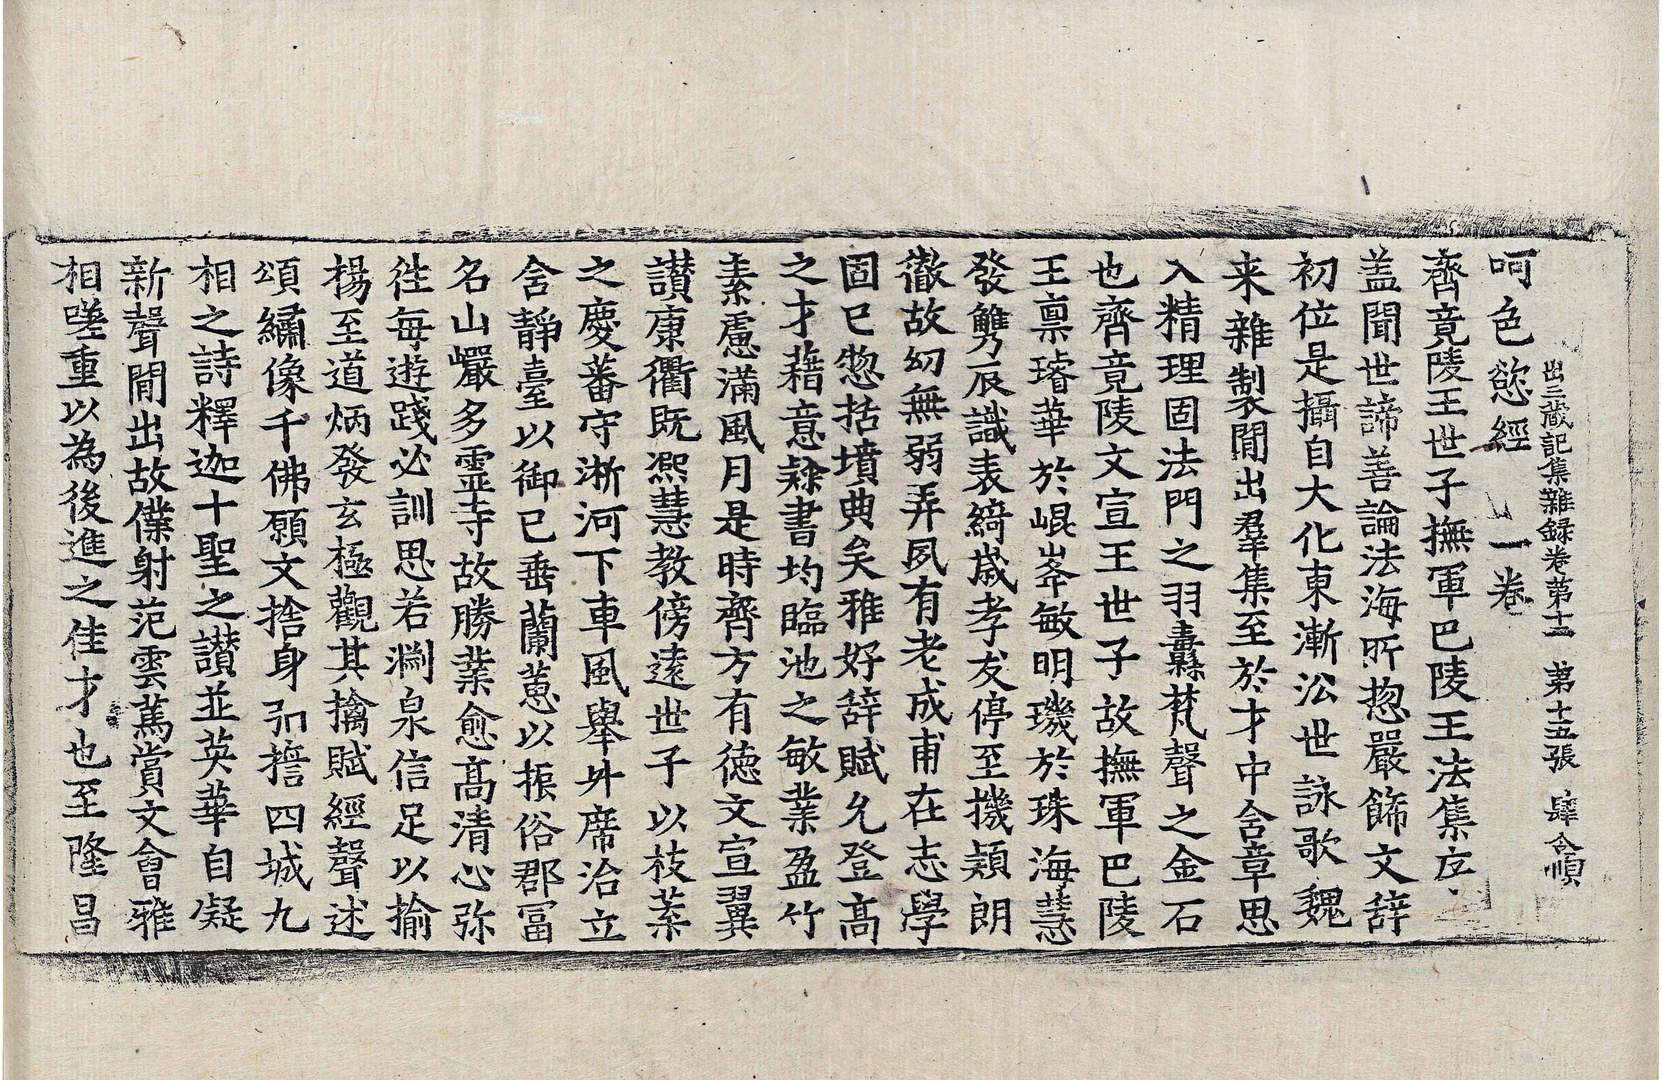 出三藏記集雜録卷第十二 第十五張 肆令傾
呵色慾經 一卷
齊竟陵王世子撫軍巴陵王法集序
盖聞世諦善論法海所惣嚴飾文辞
初位是攝自大化東漸㳂世詠歌魏
来雜製閒出羣集至於才中含章思
入精理固法門之羽纛梵聲之金石
也齊竟陵文宣王世子故撫軍巴陵
王禀璿華於崐峯敏明璣於珠海慧
發觹辰識表綺歳孝友停至機穎朗
徹故幼無弱弄夙有老成甫在志學
固已惣括墳典矣雅好辞賦允登髙
之才藉意隸書均臨池之敏業盈竹
素慮滿風月是時齊方有德文宣翼
讃康衢既凞慧教傍遠世子以枝葉
之慶蕃守淅河下車風舉卄席治立
舍静臺以御已垂蘭蕙以振俗郡冨
名山巖多靈寺故勝業愈髙清心弥
徃每遊踐必訓思若渊泉信足以揄
楊至道炳發玄極觀其摛賦經聲述
頌繡像千佛願文捨身弘擔四城九
相之詩釋迦十聖之讃並英華自凝
新聲閒出故僕射范雲篤賞文會雅
相嗟重以為後進之佳才也至隆昌